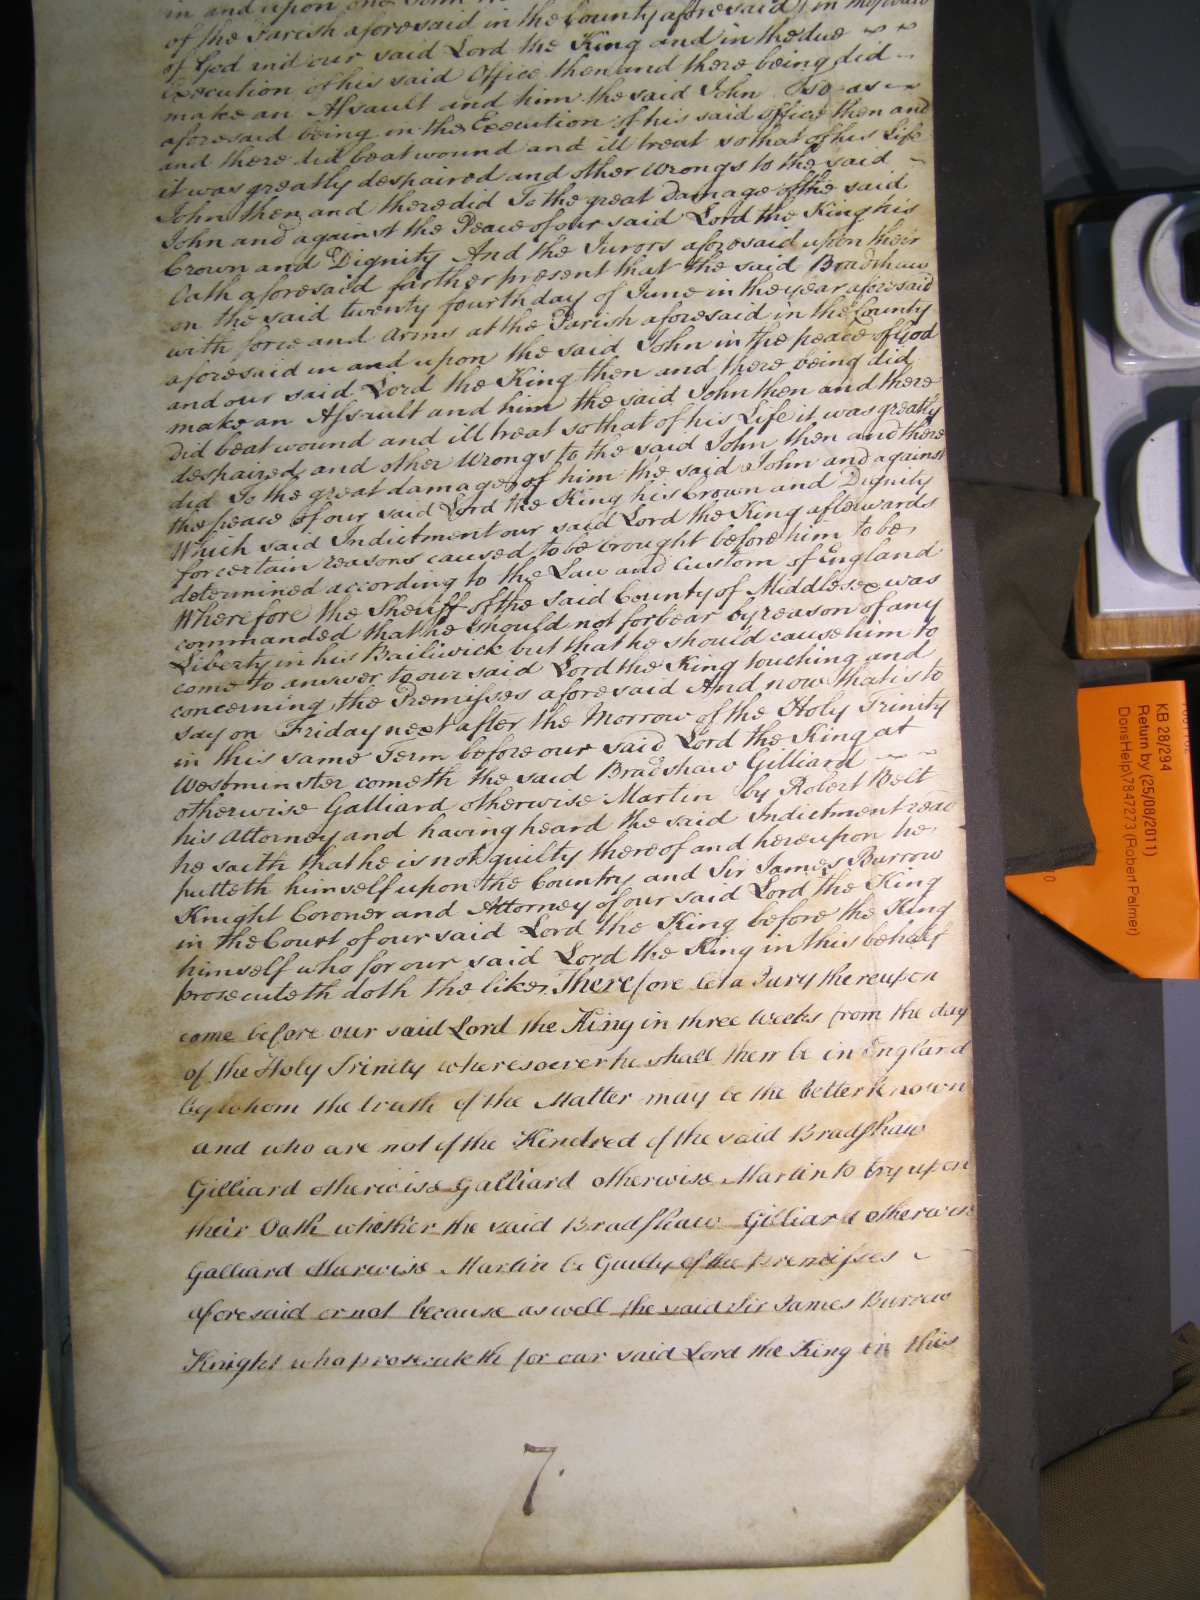 in and upon one John
of the Parish aforesaid in the County aforesaid in the peace
of God and our said Lord the King and in the due
Execution of his said Office then and there being did
make an Assault and him the said John so as
aforesaid being in the Execution of his said office then and
and there did beat wound and ill treat so that of his Life
it was greatly despaired and other Wrongs to the said
John then and there did To the great Damage of the said
John and against the Peace of our said Lord the King his
Crown and Dignity And the Jurors aforesaid upon their
Oath aforesaid farther present that the said Bradshaw
on the said twenty fourth day of June in the year aforesaid
with force and Arms at the Parish aforesaid in the County
aforesaid in and upon the said John in the peace of God
and our said Lord the King then and there being did
make an Assault and him the said John then and there
did beat wound and ill treat so that of his Life it was greatly
despaired and other Wrongs to the said John then and there
did To the great damage of him the said John and against
the peace of our said Lord the King his Crown and Dignity
Which said Indictment our said Lord the King afterwards
for certain reasons caused to be brought before him to be
determined according to the Law and Custom of England
Wherefore the Sheriff of the said County of Middlesex was
commanded that he should not forbear by reason of any
Liberty in his Bailiwick but that he should cause him to
come to answer to our said Lord the King touching and
concerning the Premisses aforesaid And now that is to
say on Friday next after the Morrow of the Holy Trinity
in this same Term before our said Lord the King at
Westminster cometh the said Bradshaw Gilliard
otherwise Galliard otherwise Martin by Robert Belt
his Attorney and having heard the said Indictment read
he saith that he is not guilty thereof and hereupon he
putteth himself upon the Country and Sir James Burrow
Knight Coroner and Attorney of our said Lord the King
in the Court of our said Lord the King before the King
himself who for our said Lord the King in this behalf
prosecuteth doth the like Therefore let a Jury thereupon
come before our said Lord the King in three Weeks from the day
of the Holy Trinity wheresoever he shall then be in England
by whom the truth of the Matter may be the better known
and who are not of the Kindred of the said Bradshaw
Gilliard otherwise Galliard otherwise Martin to try upon
their Oath whether the said Bradshaw Gilliard otherwise
Galliard otherwise Martin be Guilty of the Premisses
aforesaid or not because as well the said Sir James Burrow
Knight who prosecuteth for our said Lord the King in this
7.
KB 28/294
Return by (25/08/2011)
DorisHelp\7847273 (Robert Palmer)